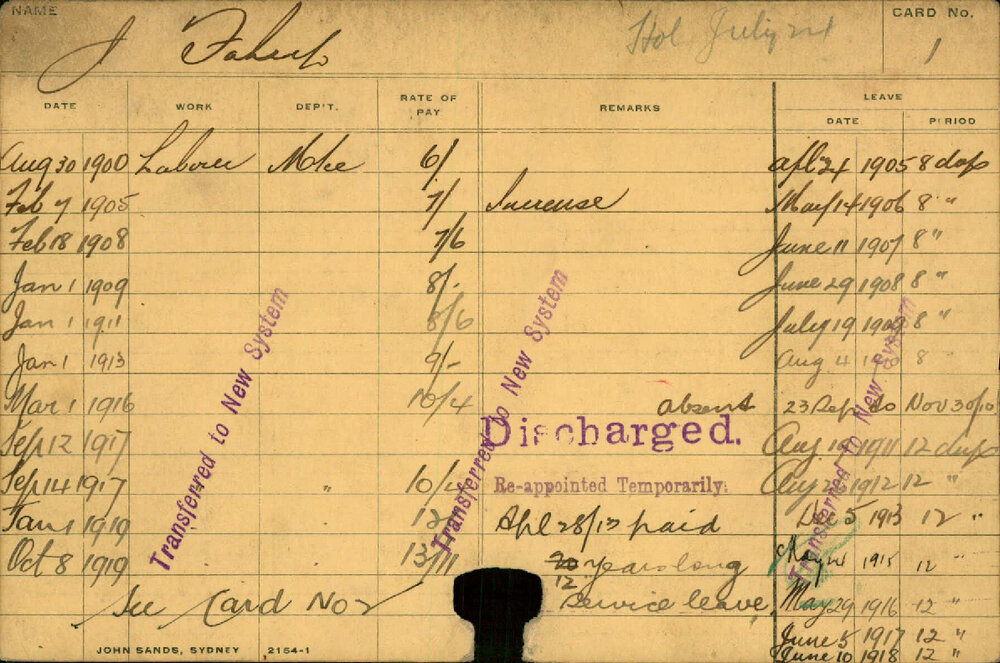 NAME J Fahey Hol July 24 CARD No. 1
DATE WORK DEP'T. RATE OF PAY REMARKS LEAVE
DATE PERIOD
Aug 30 1900 Laborer Mtce 6/. Apl 24 1905 8 days
Feb 7 1905 7/ Increase May 14 1906 8 "
Feb 18 1908 7/6 June 11 1907 8 "
Jan 1 1909 8/- June 29 1908 8 "
Jan 1 1911 8/6 July 19 1909 8 "
Jan 1 1913 9/- Aug 4 8
Mar 1 1916 10/4 absent 23 Sep to Nov 30/10
Sep 12 1917 Discharged. Aug 1911 12 days
Sep 14 1917 " 10/4 Re-appointed Temporarily. Aug 1912 12 "
Jan 1 1919 Apl 28/13 paid Dec 5 1913 12 "
Oct 8 1919 13/11 20 years long May 1915 12 "
12
See Card No 2 service leave May 29 1916 12 "
June 5 1917 12 "
June 10 1918 12 "
Transferred to New System
Transferred to New System
Transferred to New System
JOHN SANDS, SYDNEY 2154-1